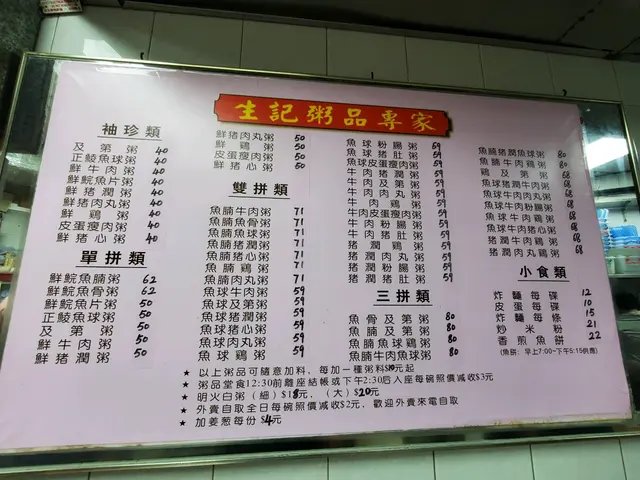 生記粥品專家
袖珍類
及第粥 40
正鯪魚球粥 40
鮮牛肉粥 40
鮮鯇魚片粥 40
鮮豬潤粥 40
鮮豬肉丸粥 40
鮮鷄粥 40
皮蛋瘦肉粥 40
鮮豬心粥 40
單拼類
鮮鯇魚腩粥 62
鮮鯇魚骨粥 62
鮮鯇魚片粥 50
正鯪魚球粥 50
及第粥 50
鮮牛肉粥 50
鮮豬潤粥 50
鮮豬肉丸粥 50
鮮鷄粥 50
皮蛋瘦肉粥 50
鮮豬心粥 50
雙拼類
魚腩牛肉粥 71
魚腩魚骨粥 71
魚腩魚球粥 71
魚腩豬潤粥 71
魚腩豬心粥 71
魚腩鷄粥 71
魚腩肉丸粥 71
魚球牛肉粥 59
魚球及第粥 59
魚球豬潤粥 59
魚球豬心粥 59
魚球肉丸粥 59
魚球鷄粥 59
魚球粉腸粥 59
魚球豬肚粥 59
魚球皮蛋瘦肉粥 59
牛肉豬潤粥 59
牛肉及第粥 59
牛肉肉丸粥 59
牛肉鷄粥 59
牛肉皮蛋瘦肉粥 59
牛肉粉腸粥 59
牛肉豬肚粥 59
豬潤鷄粥 59
豬潤粉腸粥 59
豬潤豬肚粥 59
三拼類
魚骨及第粥 80
魚腩及第粥 80
魚腩魚球鷄粥 80
魚腩牛肉魚球粥 80
魚腩豬潤魚球粥 80
魚腩牛肉鷄粥 80
鷄及第粥 68
魚球豬潤牛肉粥 68
魚球牛肉粉腸粥 68
魚球牛肉鷄粥 68
魚球豬潤鷄粥 68
豬潤牛肉粥 68
豬潤牛肉鷄粥 68
小食類
炸麵每碟 12
皮蛋每碟 10
炸麵每條 15
炒米粉 21
香煎魚餅 22
(魚餅：早上7:00~下午5:15供應)
★ 以上粥品可隨意加料，每加一種粥料$10元起
★ 粥品堂食12:30前離座結帳或下午2:30后入座每碗照價減收$3元
★ 明火白粥（細）$18元，（大）$20元
★ 外賣自取全日每碗照價減收$2元，歡迎外賣來電自取
★ 加姜葱每份$4元